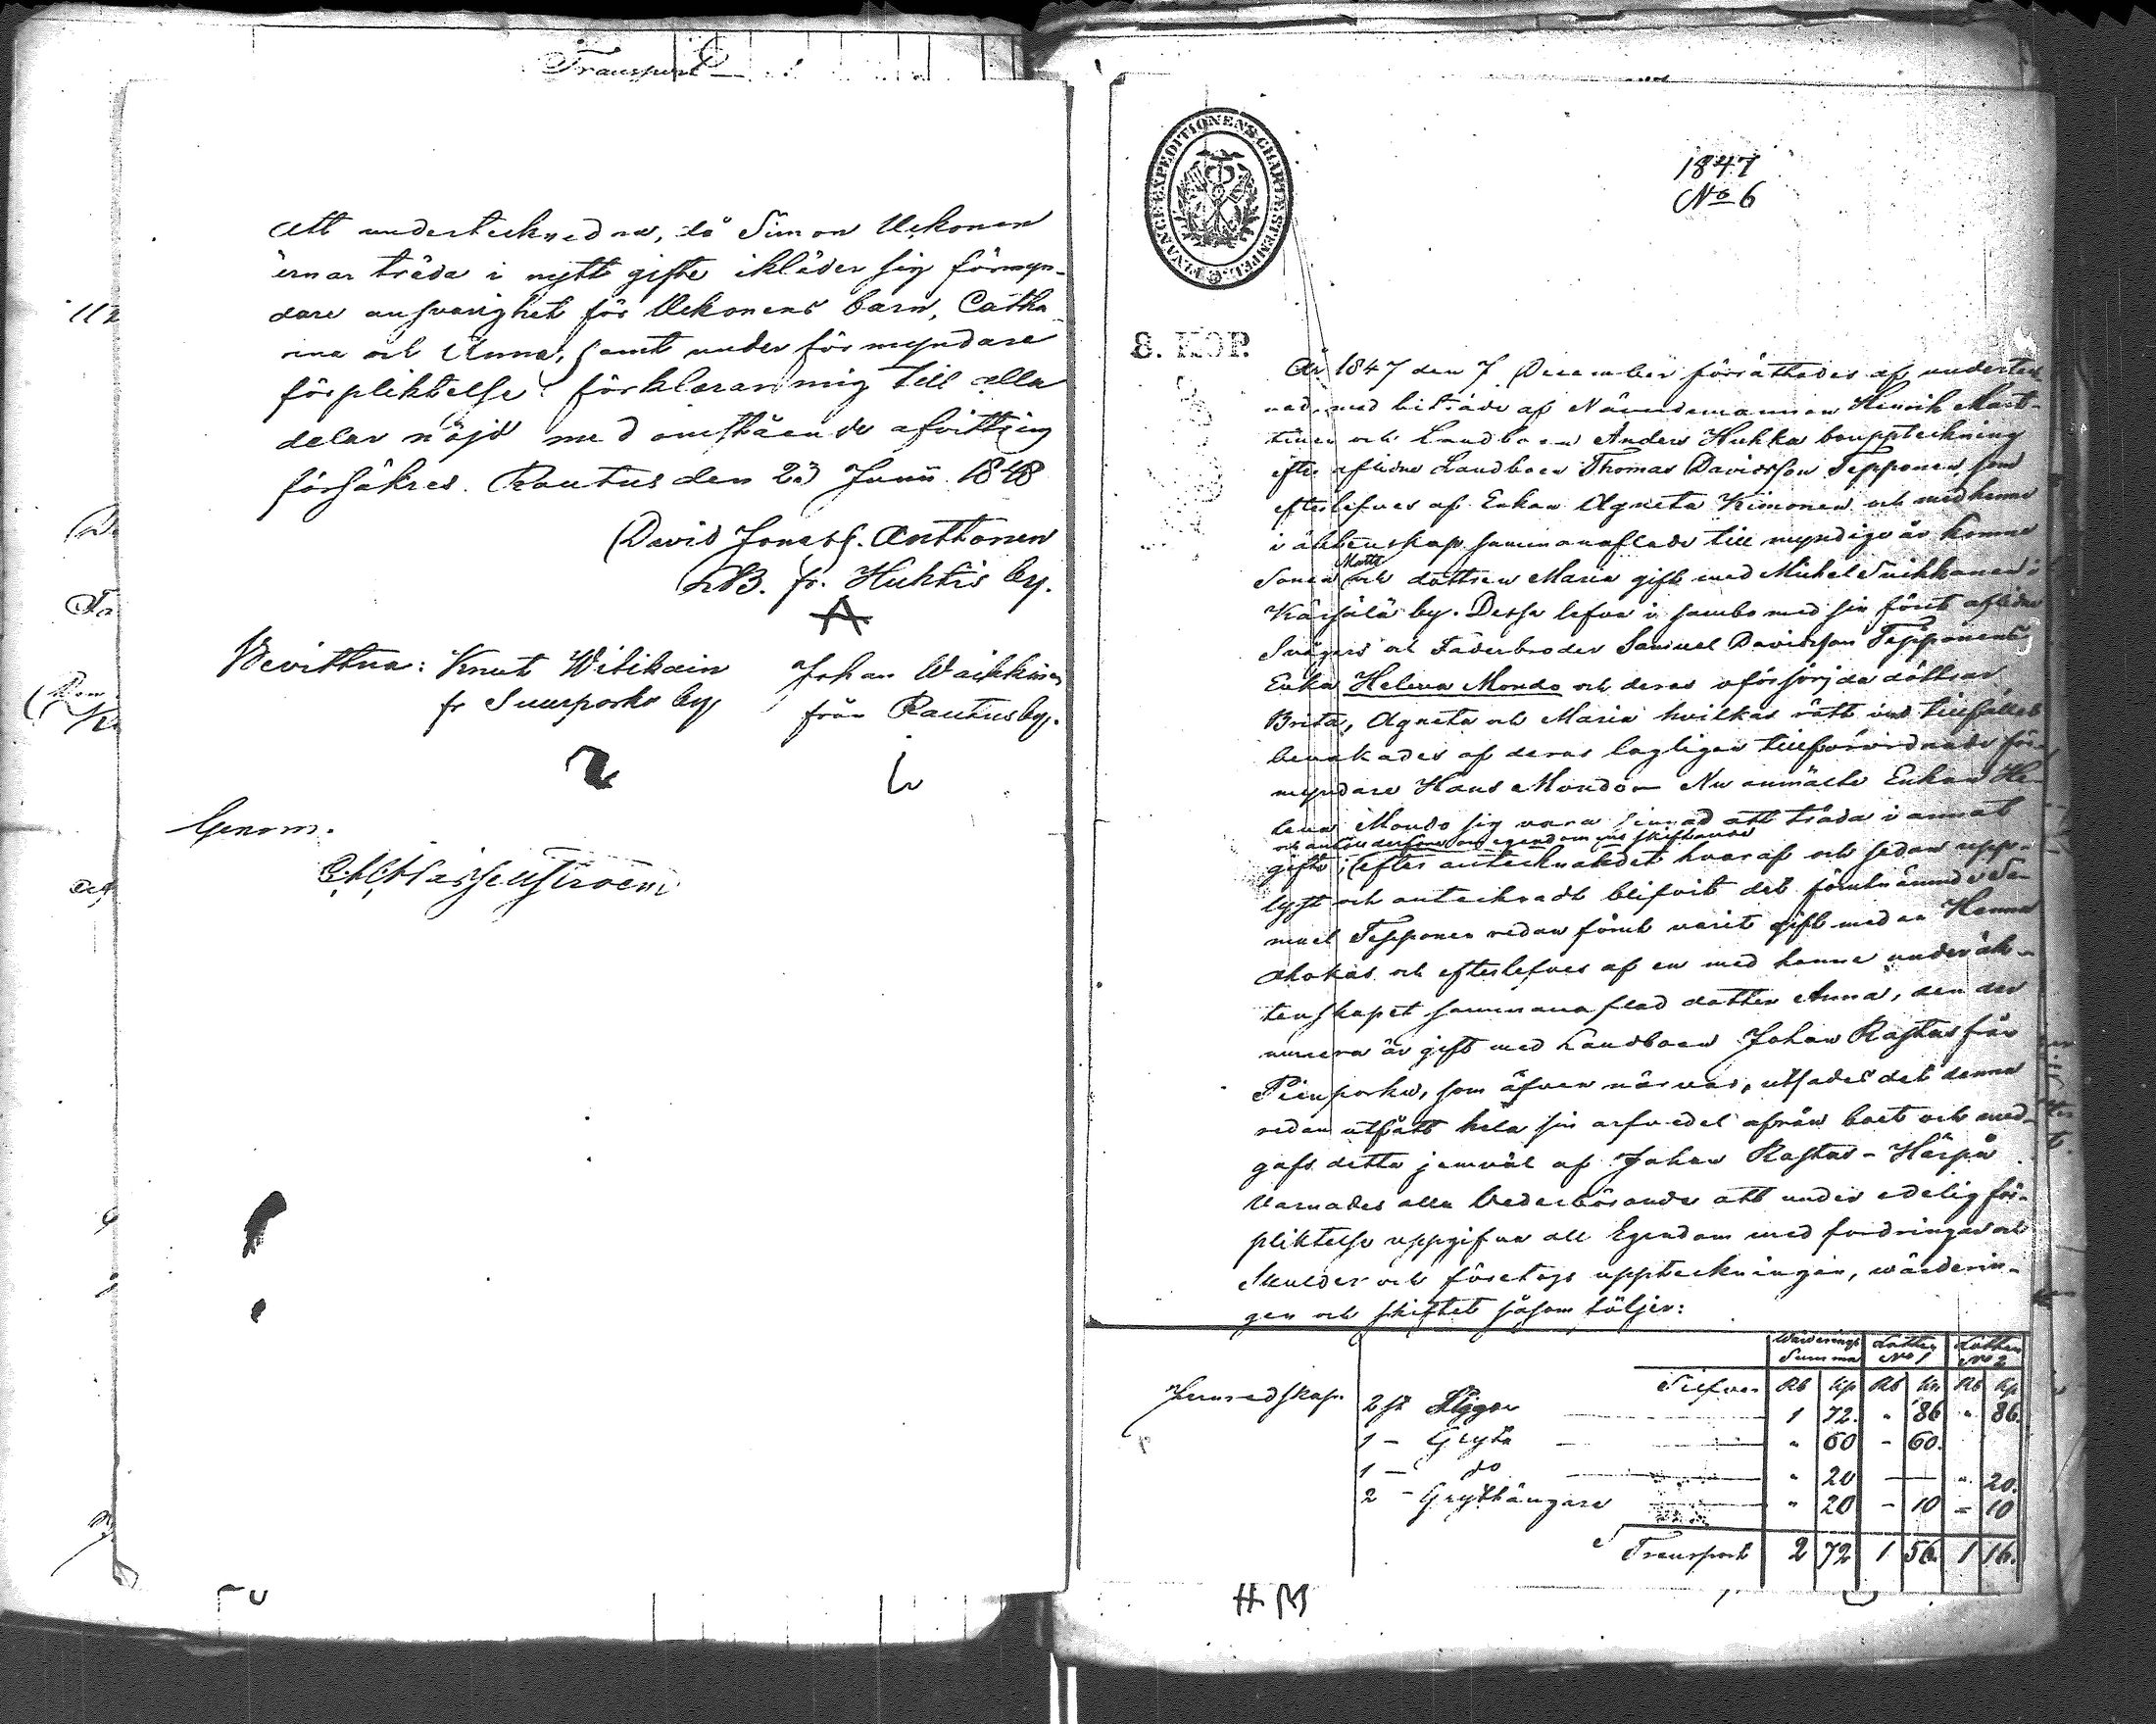 Transport
Att undertecknad, då Simon Uskonen
ärnar träda i nytt gifte ikläder sig förmyn-
dare ansvarighet för Uskonens barn, Catha-
rina och Anna, samt under förmyndare
förpliktelse förklarar mig till alla
delar nöjd med omstående afvittring
försäkres. Rautus den 23 Junii 1848
David Jonass. Anttonen
LB. fr. Huhtis by.
Bevittna: Knut Witikain Johan Waikkinen
fr Suurporko by från Rautus by.
Genom.
1847
No 6
FINANCE EXPEDITIONENS CHARTÆ STEMPEL
8. KOP.
År 1847 den 7 December förrättades af underteck
nad med biträde af Nämndemannen Henrik Mart-
tinen och Landboen Anders Hukka bouppteckning
efter aflidne Landboen Thomas Davidsson Tepponen, som
efterlefves af Enkan Agneta Kimonen och med henne
i äktenskap sammanaflade till myndige år komne
Sonen Matts och dottren Maria gift med Michel Suikkanen i
Kärsälä by. Dessa lefva i sambo med sin förut aflidne
Svågers och Faderbroder Samuel Davidsson Tepponens
Enka Helena Mondo och deras oförsörjda döttrar
Brita, Agneta och Maria hvilkas rätt vid tillfället
bevakades af deras lagligen tillförordnade för-
myndare Hans Mondo – Nu anmälte Enkan He-
lena Mondo sig vara sinnad att träda i annat
gifte, efter antecknandet hvaraf och sedan upp-
lyst och antecknadt blifvit det förutnämnde Sa-
muel Tepponen redan förut varit gift med en Hanna
Ahokas och efterlefves af en med henne under äk-
tenskapet sammanaflad dotter Anna, den der
numera är gift med Landboen Johan Rastas från
Pienporko, som äfven närvar, utsades det denna
redan utfått hela sin arfvedel afrån boet och med-
gafs detta jemväl af Johan Rastas – Härpå
varnades alla Vederbörande att under edelig för-
pliktelse uppgifva all Egendom med fordringar och
Skulder och företogs uppteckningen, wärderin-
gen och skiftet såsom följer:
Wärderings Summa Lotten No 1 Lotten No 2
Jernredskap. Silfver Rb Kp Rb Kp Rb Kp
2 st 1 72. " 86 " 86.
1 – Gryta " 60 – 60.
1 – do " 20 — " 20.
2 – Grythängare " 20 – 10 – 10
Transport 2 72 1 56. 1 16.